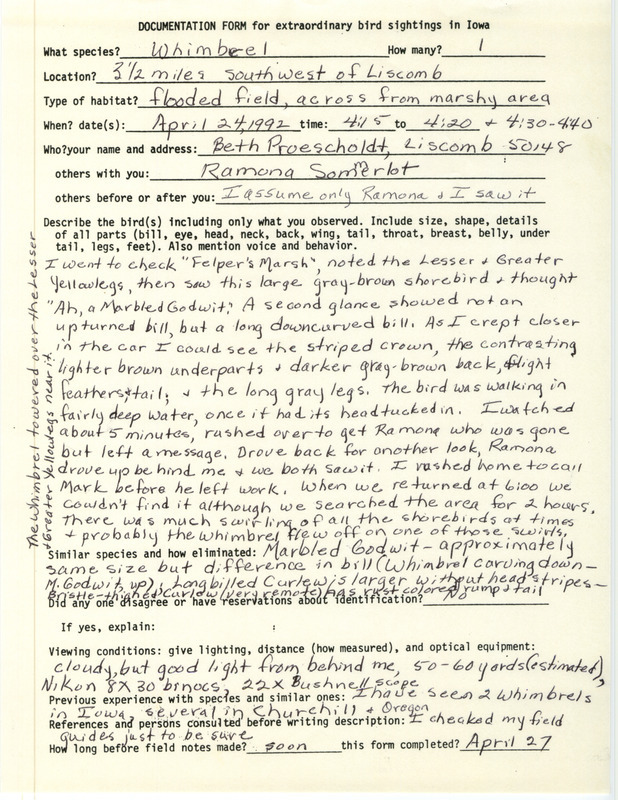 DOCUMENTATION FORM for extraordinary bird sightings in Iowa
What species? Whimbrel How many? 1
Location? 3 1/2 miles southwest of Liscomb
Type of habitat? flooded field, across from marshy area
When? date(s): April 24, 1992 time: 4:15 to 4:20 + 4:30-4:40
Who? your name and address: Beth Proescholdt, Liscomb 50148
others with you: Ramona Somerlot
others before or after you: I assume only Ramona & I saw it
Describe the bird(s) including only what you observed. Include size, shape, details
of all parts (bill, eye, head, neck, back, wing, tail, throat, breast, belly, under
tail, legs, feet). Also mention voice and behavior.
I went to check "Felper's Marsh", noted the Lesser & Greater
Yellowlegs, then saw this large gray-brown shorebird & thought
"Ah, a Marbled Godwit." A second glance showed not an
upturned bill, but a long downcurved bill. As I crept closer
in the car I could see the striped crown, the contrasting
lighter brown underparts & darker gray-brown back, flight
feathers & tail, & the long gray legs. The bird was walking in
fairly deep water, once it had its head tucked in. I watched
about 5 minutes, rushed over to get Ramona who was gone
but left a message. Drove back for another look, Ramona
drove up behind me & we both saw it. I rushed home to call
Mark before he left work. When we returned at 6:00 we
couldn't find it although we searched the area for 2 hours.
There was much swirling of all the shorebirds at times
& probably the whimbrel flew off on one of those swirls.
The whimbrel towered over the Lesser
& Greater Yellowlegs near it.
Similar species and how eliminated: Marbled Godwit - approximately
same size but difference in bill (Whimbrel curving down -
M. Godwit, up); Longbilled Curlew is larger without head stripes -
Bristle-thighed Curlew (very remote) has rust colored rump & tail
Did any one disagree or have reservations about identification? No
If yes, explain:
Viewing conditions: give lighting, distance (how measured), and optical equipment:
cloudy, but good light from behind me, 50-60 yards (estimated),
Nikon 8X30 binocs, 22X Bushnell scope
Previous experience with species and similar ones: I have seen 2 whimbrels
in Iowa, several in Churchill & Oregon
References and persons consulted before writing description: I checked my field
guides just to be sure
How long before field notes made? soon this form completed? April 27